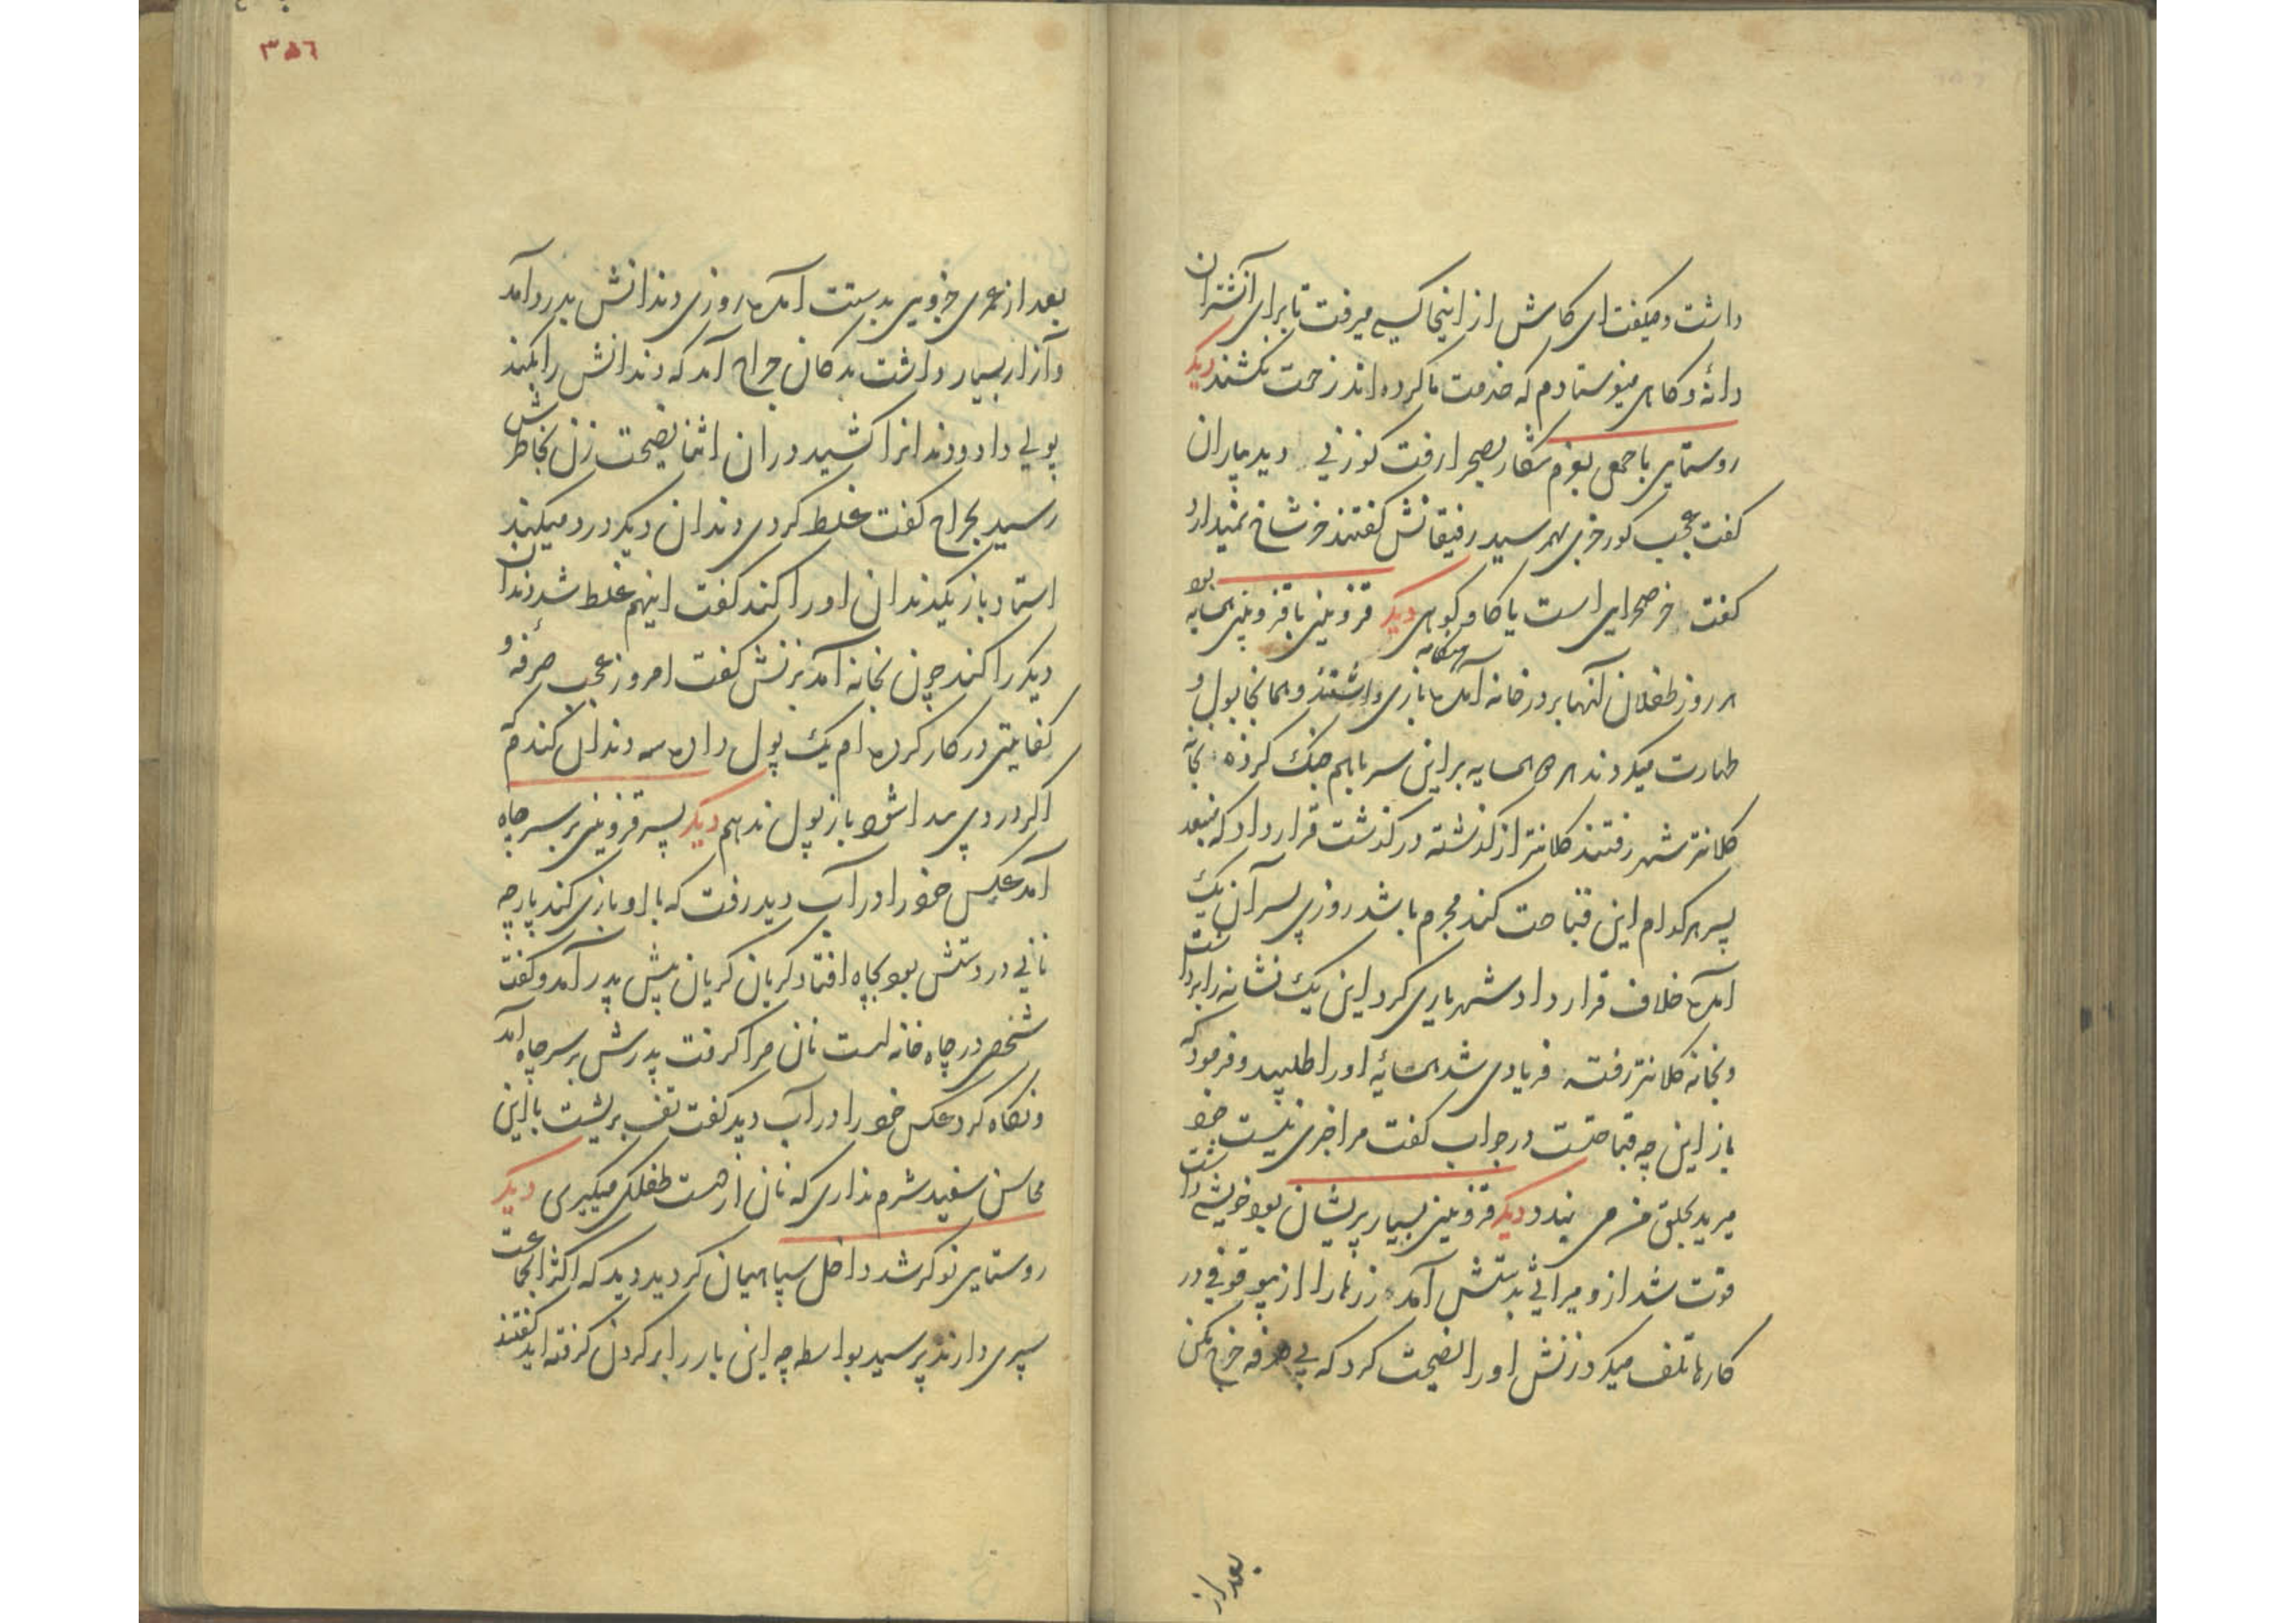 داشت و میگفت ای کاش از اینجا کسی میرفت تا برای آنشتران
دانه و کاهی میفرستادم که خدمت ما کرده اند زحمت نکشند دیگر
روستایی با جمعی بعزم شکار بصحرا رفت کوزنی دید بیاران
کفت عجب کورخری بهم رسید رفیقانش کفتند خر شاخ نمیدارد
کفت خر صحرایی است یا کاو کوهی دیگر قزوینی با قزوینی همسایه بود
هر روز طفلان آنها بر در خانه آمده هنکامه بازی داشتند و همانجا بول و
طهارت میکردند هر دو همسایه بر این سر باهم جنک کرده بخانه
کلانتر شهر رفتند کلانتر از کذشته در کذشت قرار داد که من بعد
پسر هرکدام این قباحت کند مجرم باشد روزی پسر آن یک
آمده خلاف قرار داد شهریاری کرد این یک نشانه را برداشت
و بخانه کلانتر رفته فریادی شد همسایه او را طلبید و فرمود که
باز این چه قباحتست در جواب کفت مرا خبری نیست خود
میرید بحلق من می بندد دیگر قزوینی بسیار پریشان بود خویشی داشت
فوت شد ازو میراثی بدستش آمده زرها را از بیوقوفی در
کارها تلف میکرد زنش او را نصیحت کرد که بی صرفه خرج مکن
بعد از
۳۵٦
بعد از عمری جزویی بدستت آمده روزی دندانش بدرد آمد
و آزار بسیار داشت بدکان جراح آمد که دندانش را بکند
پولی داد و دندانرا کشید در ان اثنا نصیحت زن بخاطرش
رسید بجراح کفت غلط کردی دندان دیگر درد میکند
استاد باز یکدندان او را کند کفت اینهم غلط شد دندان
دیگر را کند چون بخانه آمد بزنش کفت امروز عجب صرفه و
کفایتی در کار کرده ام یک پول داده سه دندان کندم که
اکر دردی پیدا شود باز پول ندهم دیگر پسر قزوینی بر سر چاه
آمد عکس خود را در آب دید رفت که با او بازی کند پارچه
نانی در دستش بود بچاه افتاد کریان کریان پیش پدر آمد و کفت
شخصی در چاه خانه است نان مرا کرفت پدرش بر سر چاه آمد
و نکاه کرد عکس خود را در آب دید کفت تف بریشت با این
محاسن سفید شرم نداری که نان از دست طفلکی میکیری دیگر
روستایی نوکر شد داخل سپاهیان کردید دید که اکثر الجماعت
سپری دارند پرسید بواسطه چه این بار را بر کردن کرفته اید کفتند